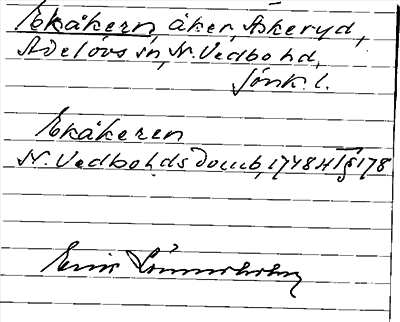 Ekåkern, åker, Askeryd,
Adelövs sn, N. Vedbo hd,
Jönk. l.
Ekåkeren
N. Vedbo hds domb, 1748 HT § 178